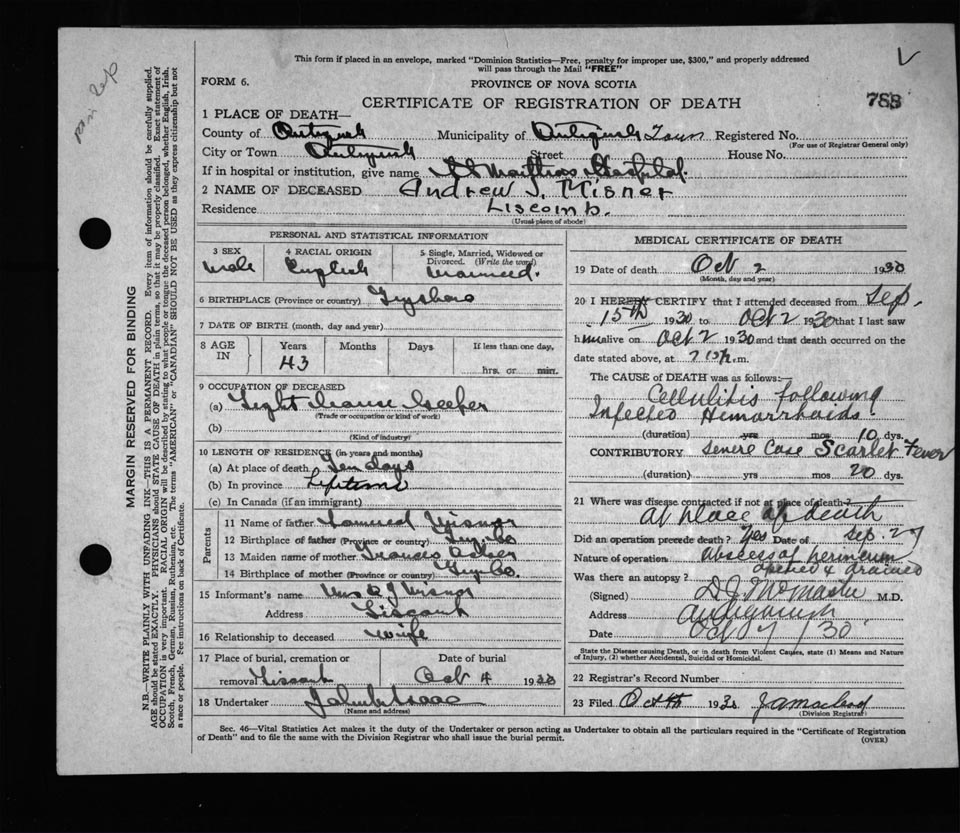 This form if placed in an envelope, marked "Dominion Statistics—Free, penalty for improper use, $300," and properly addressed
will pass through the Mail "FREE"
FORM 6.
PROVINCE OF NOVA SCOTIA
CERTIFICATE OF REGISTRATION OF DEATH
788
1 PLACE OF DEATH—
County of Antigonish Municipality of Antigonish Town Registered No.
(For use of Registrar General only)
City or Town Antigonish Street House No.
If in hospital or institution, give name St Marthas Hospital.
2 NAME OF DECEASED Andrew J. Misner
Residence Liscomb.
(Usual place of abode)
PERSONAL AND STATISTICAL INFORMATION
3 SEX 4 RACIAL ORIGIN 5 Single, Married, Widowed or
Divorced. (Write the word)
Male English Married.
6 BIRTHPLACE (Province or country)
7 DATE OF BIRTH (month, day and year)
8 AGE IN Years Months Days If less than one day,
43 hrs. or min.
9 OCCUPATION OF DECEASED
(a) Light House Keeper
(Trade or occupation or kind of work)
(b)
(Kind of industry)
10 LENGTH OF RESIDENCE (in years and months)
(a) At place of death Ten days
(b) In province Lifetime
(c) In Canada (if an immigrant)
Parents
11 Name of father Misner
12 Birthplace of father (Province or country) Guy Co
13 Maiden name of mother Frances
14 Birthplace of mother (Province or country) Guy Co.
15 Informant's name Mrs A J Misner
Address Liscomb
16 Relationship to deceased wife
17 Place of burial, cremation or Date of burial
removal Liscomb Oct 4 1930
18 Undertaker John
(Name and address)
MEDICAL CERTIFICATE OF DEATH
19 Date of death Oct 2 1930
(Month, day and year)
20 I HEREBY CERTIFY that I attended deceased from Sep.
15th 1930 to Oct 2 1930 that I last saw
him alive on Oct 2 1930 and that death occurred on the
date stated above, at m.
The CAUSE of DEATH was as follows:—
Cellulitis following
Infected Hemorrhoids
(duration) yrs mos 10 dys.
CONTRIBUTORY Severe Case Scarlet Fever
(duration) yrs mos 20 dys.
21 Where was disease contracted if not at place of death?
At place of death
Did an operation precede death? Yes Date of Sep. 27
Nature of operation abscess of perineum
opened & drained
Was there an autopsy?
(Signed) M.D.
Address Antigonish
Date Oct 7 / 30
State the Disease causing Death, or in death from Violent Causes, state (1) Means and Nature
of Injury, (2) whether Accidental, Suicidal or Homicidal.
22 Registrar's Record Number
23 Filed Oct 193
(Division Registrar)
Sec. 46—Vital Statistics Act makes it the duty of the Undertaker or person acting as Undertaker to obtain all the particulars required in the "Certificate of Registration
of Death" and to file the same with the Division Registrar who shall issue the burial permit.
(OVER)
MARGIN RESERVED FOR BINDING
N.B.—WRITE PLAINLY WITH UNFADING INK—THIS IS A PERMANENT RECORD. Every item of information should be carefully supplied.
AGE should be stated EXACTLY. PHYSICIANS should STATE CAUSE OF DEATH in plain terms, so that it may be properly classified. Exact statement of
OCCUPATION is very important. RACIAL ORIGIN will be described by stating to what people or tongue the deceased person belonged, whether English, Irish,
Scotch, French, German, Russian, Ruthenian, etc. The terms "AMERICAN" or "CANADIAN" SHOULD NOT BE USED as they express citizenship but not
a race or people. See instructions on back of Certificate.